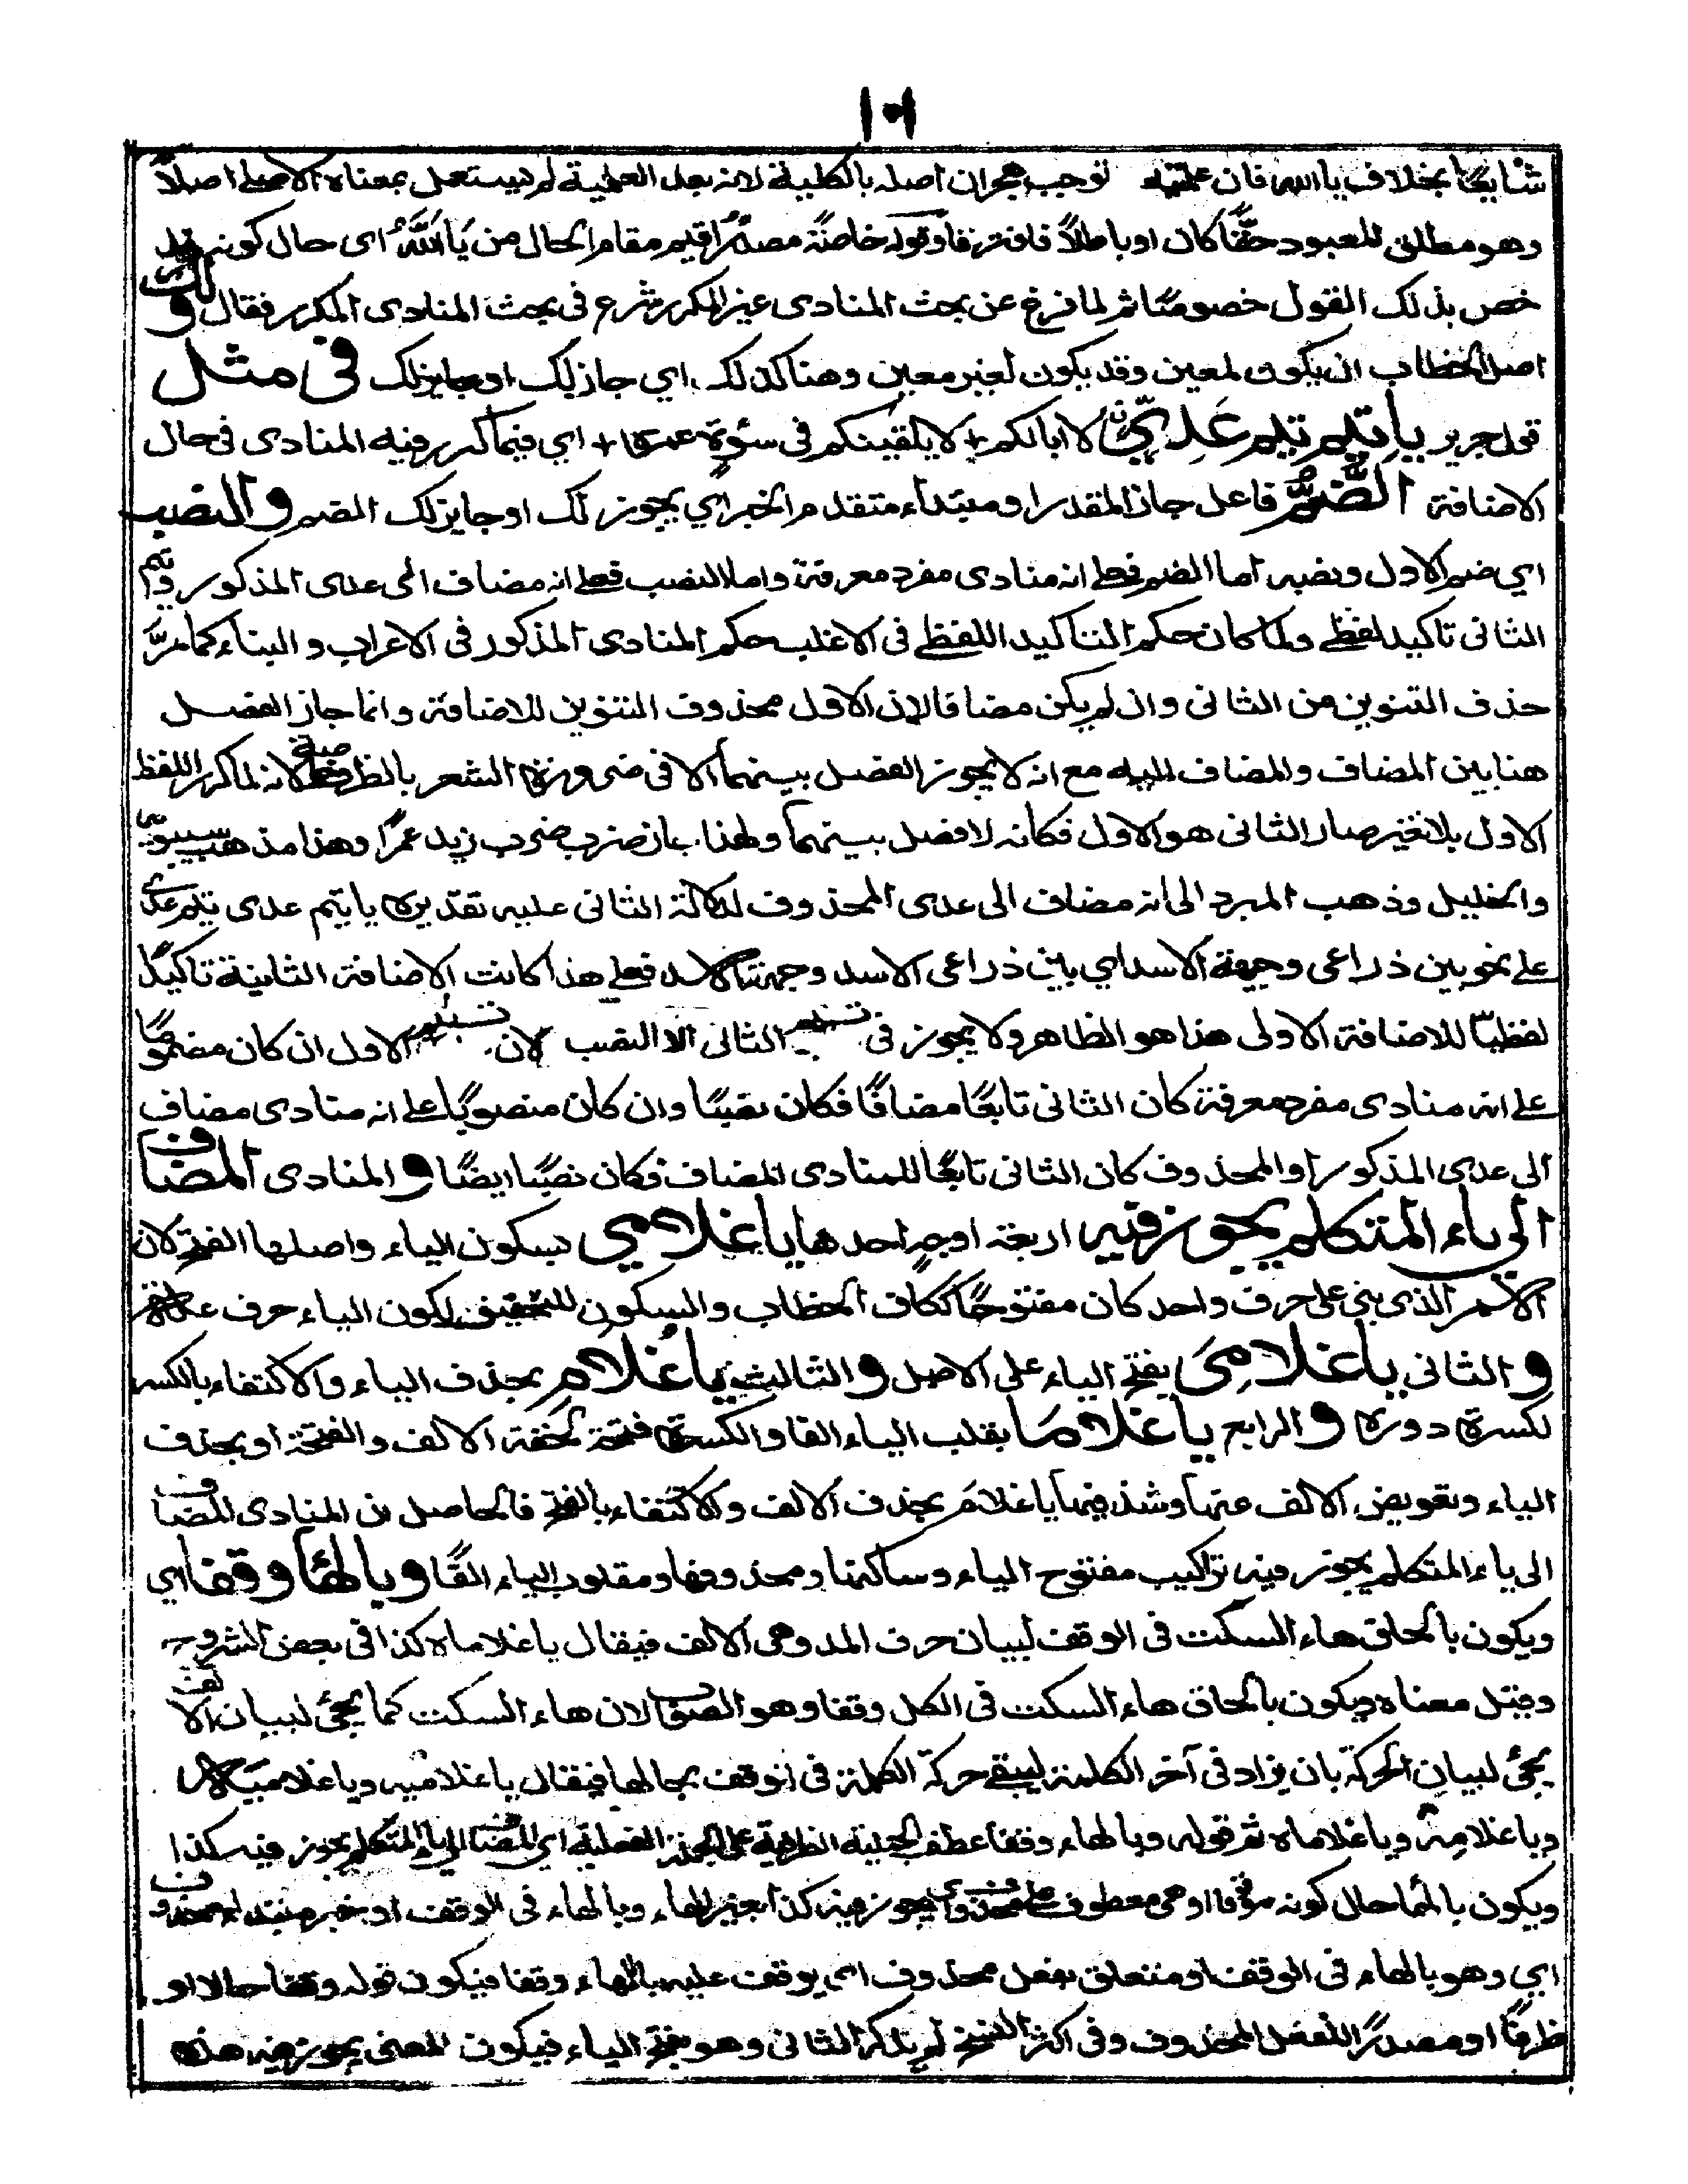 ١٠١
شايعًا بخلاف يا الله فان علميته توجب هجران اصله بالكلية لانه بعد العلمية لم يستعمل بمعناه الاصلى اصلاً
وهو مطلق للمعبود حقًّا كان او باطلاً فافترقا وقوله خاصّةً مصدرٌ اقيم مقام الحال من يَا اَللّٰهُ اى حال كونه قد
خص بذلك القول خصوصًا ثم لما فرغ عن بحث المنادى غير المكرر شرع فى بحث المنادى المكرر فقال ولك
اصل الخطاب ان يكون لمعين وقد يكون لغير معين وهنا كذلك اي جاز لك او جايز لك فى مثل
قول جرير يا تيم تيم عَدِيٍّ لا ابا لكم + لا يلقينكم فى سوْءَة عمر + اي فيما كرر فيه المنادى فى حال
الاضافة الضَّمُّ فاعل جاز المقدر او مبتداء متقدم الخبر اي يجوز لك او جايز لك الضم والنصب
اي ضم الاول ونصبه اما الضم فعلى انه منادى مفرد معرفة واما النصب فعلى انه مضاف الى عدى المذكور وتيم
الثانى تاكيد لفظى ولما كان حكم التاكيد اللفظى فى الاغلب حكم المنادى المذكور فى الاعراب و البناء كما مرَّ
حذف التنوين من الثانى وان لم يكن مضافا لان الاول محذوف التنوين للاضافة وانما جاز الفصل
هنا بين المضاف والمضاف اليه مع انه لا يجوز الفصل بينهما الا فى ضرورة الشعر بالظرف خاصة لانه لما كرر اللفظ
الاول بلا تغير صار الثانى هو الاول فكانه لا فصل بينهما ولهذا جاز ضرب ضرب زيد عمرًا وهذا مذهب سيبويه
والخليل وذهب المبرد الى انه مضاف الى عدى المحذوف لدلالة الثانى عليه تقديره يا تيم عدى تيم عدى
على نحو بين ذراعى وجبهة الاسد اي بين ذراعى الاسد وجبهة الاسد فعلى هذا كانت الاضافة الثانية تاكيدًا
لفظيّا للاضافة الاولى هذا هو الظاهر ولا يجوز فى تيم الثانى الا النصب لان تيم الاول ان كان مضمومًا
على انه منادى مفرد معرفة كان الثانى تابعًا مضافًا فكان نصبًا وان كان منصوبًا على انه منادى مضاف
الى عدى المذكور او المحذوف كان الثانى تابعًا للمنادى المضاف فكان نصبًا ايضًا و المنادى المضاف
الى ياء المتكلم يجوز فيه اربعة اوجهٍ احدها يا غلامي بسكون الياء واصلها الفتح لان
الاسم الذى بنى على حرف واحد كان مفتوحًا ككاف الخطاب والسكون للتخفيف لكون الياء حرف علة
و الثانى يا غلامِيَ بفتح الياء على الاصل و الثالث يا غُلامِ بحذف الياء والاكتفاء بالكسر
لكسرة دوره و الرابع يا غلامَا بقلب الياء الفا والكسرة فتحة لخفة الالف والفتحة او بحذف
الياء وتعويض الالف عنها وشذ فيها يا غلامَ بحذف الالف والاكتفاء بالفتح فالحاصل ان المنادى المضاف
الى ياء المتكلم يجوز فيه تراكيب مفتوح الياء وساكنها ومحذوفها ومقلوب الياء الفًا وبالهاء وقفا اي
ويكون بالحاق هاء السكت فى الوقف لبيان حرف المد وهى الالف فيقال يا غلاماه كذا فى بعض الشروح
وقيل معناه ويكون بالحاق هاء السكت فى الكل وقفا وهو الصواب لان هاء السكت كما يجئ لبيان الالف
يجئ لبيان الحركة بان يزاد فى آخر الكلمة ليبقى حركة الكلمة فى الوقف بحالها فيقال يا غلاميه ويا غلاميَه
ويا غلامِه ويا غلاماه ثم قوله وبالهاء وقفا عطف الجملة الظرفية على الجملة الفعلية اي المضاف الى ياء المتكلم يجوز فيه كذا
ويكون بالهاء حال كونه موقوفا او هى معطوف على محذوف اي يجوز فيه كذا بغير الهاء وبالهاء فى الوقف او خبر مبتداء محذوف
اي وهو بالهاء فى الوقف او متعلق بفعل محذوف اى يوقف عليه بالهاء وقفا فيكون قوله وقفا حالا او
ظرفًا او مصدرًا للفعل المحذوف وفى اكثر النسخ لم يذكر الثانى وهو بفتح الياء فيكون المعنى يجوز فيه هذه